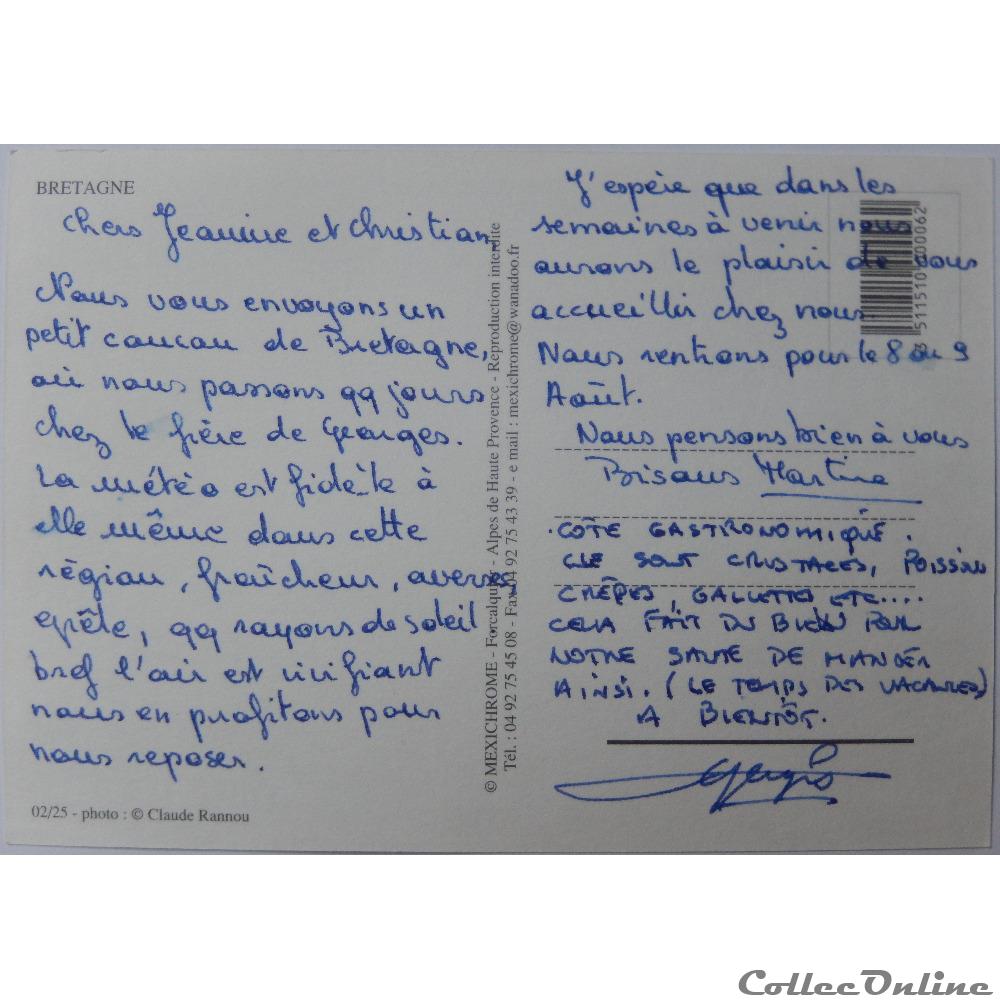 BRETAGNE
Chers Jeannine et Christian,
Nous vous envoyons un
petit coucou de Bretagne,
où nous passons qq jours
chez le frère de Georges.
La météo est fidèle à
elle même dans cette
région, fraîcheur, averses
grêle, qq rayons de soleil
bref l'air est vivifiant
nous en profitons pour
nous reposer.
02/25 - photo : © Claude Rannou
© MEXICHROME - Forcalquier - Alpes de Haute Provence - Reproduction interdite
Tél. : 04 92 75 45 08 - Fax 04 92 75 43 39 - e mail : mexichrome@wanadoo.fr
J'espère que dans les
semaines à venir nous
aurons le plaisir de vous
accueillir chez nous.
Nous rentrons pour le 8 ou 9
Août.
Nous pensons bien à vous
Bisous Martine
. CÔTE GASTRONOMIQUE .
CE SONT CRUSTACES, POISSONS
CRÊPES, GALETTES ETC....
CELA FAIT DU BIEN POUR
NOTRE SANTE DE MANGER
AINSI. (LE TEMPS DES VACANCES)
A BIENTÔT.
Georges
3 511510 000062
CollecOnline